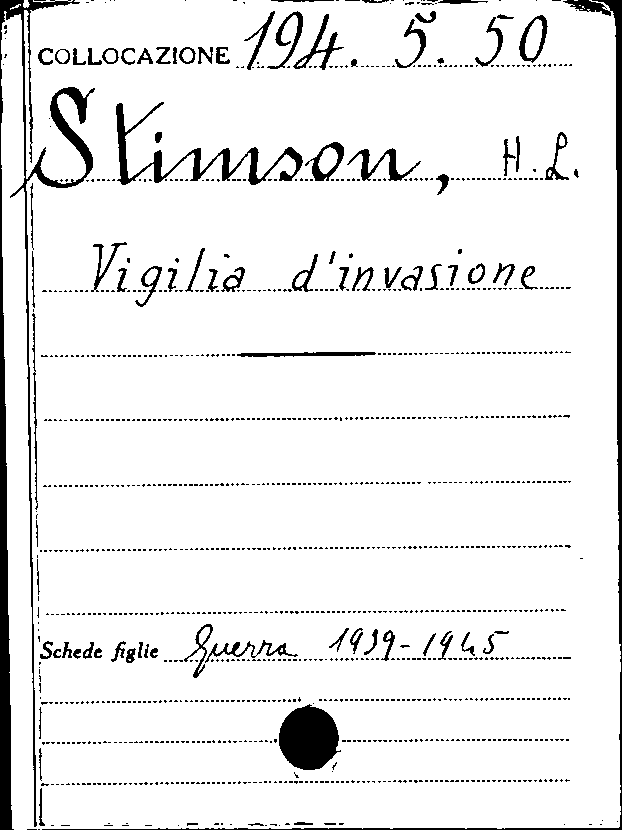 COLLOCAZIONE 194. 5. 50
Stimson, H.L.
Vigilia d'invasione
Schede figlie Guerra 1939-1945